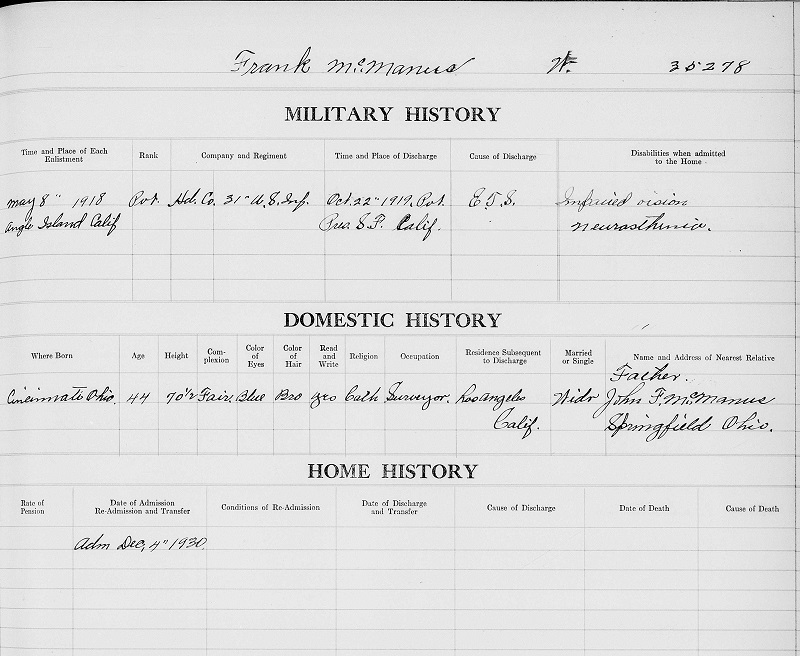 Frank McManus W. 35278
MILITARY HISTORY
Time and Place of Each Enlistment | Rank | Company and Regiment | Time and Place of Discharge | Cause of Discharge | Disabilities when admitted to the Home
May 8" 1918 | Pvt. | Hd. Co. 31" U.S. Inf. | Oct. 22" 1919. Pvt. | E.T.S. | Impaired vision
Angle Island Calif | Pres. S.F. Calif. | neurasthinia.
DOMESTIC HISTORY
Where Born | Age | Height | Complexion | Color of Eyes | Color of Hair | Read and Write | Religion | Occupation | Residence Subsequent to Discharge | Married or Single | Name and Address of Nearest Relative
Father.
Cincinnati Ohio. | 44 | 70 1/2 | Fair. | Blue | Bro | yes | Cath | Surveyor. | Los Angeles | Widr | John F. McManus
Calif. | Springfield Ohio.
HOME HISTORY
Rate of Pension | Date of Admission Re-Admission and Transfer | Conditions of Re-Admission | Date of Discharge and Transfer | Cause of Discharge | Date of Death | Cause of Death
Adm Dec, 4" 1930.